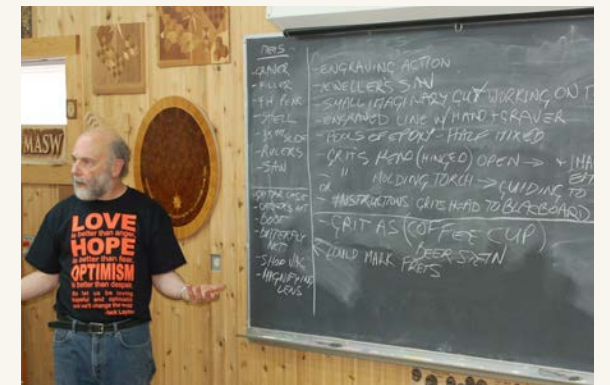 MASW
LOVE
is better than anger.
HOPE
is better than fear.
OPTIMISM
is better than despair.
So let us be loving,
hopeful and optimistic
and we'll change the world.
-Jack Layton
-GRAVER
-RULERS
-SAW
-GUITAR CASE
-BUTTERFLY
NET
-SHOP VAC
-MAGNIFYING
LENS
-ENGRAVING ACTION
-JEWELLER'S SAW
-SMALL IMAGINARY GUY WORKING ON
-ENGRAVED LINE W/ HAND + GRAVER
-POOLS OF EPOXY - HALF MIXED
-GRITS HEAD (HINGED) OPEN →
" HOLDING TORCH → GUIDING TO
OR
INSTRUCTIONS GRITS HEAD TO BLACKBOARD
-GRIT AS (COFFEE CUP)
BEER STEIN
COULD MARK FRETS